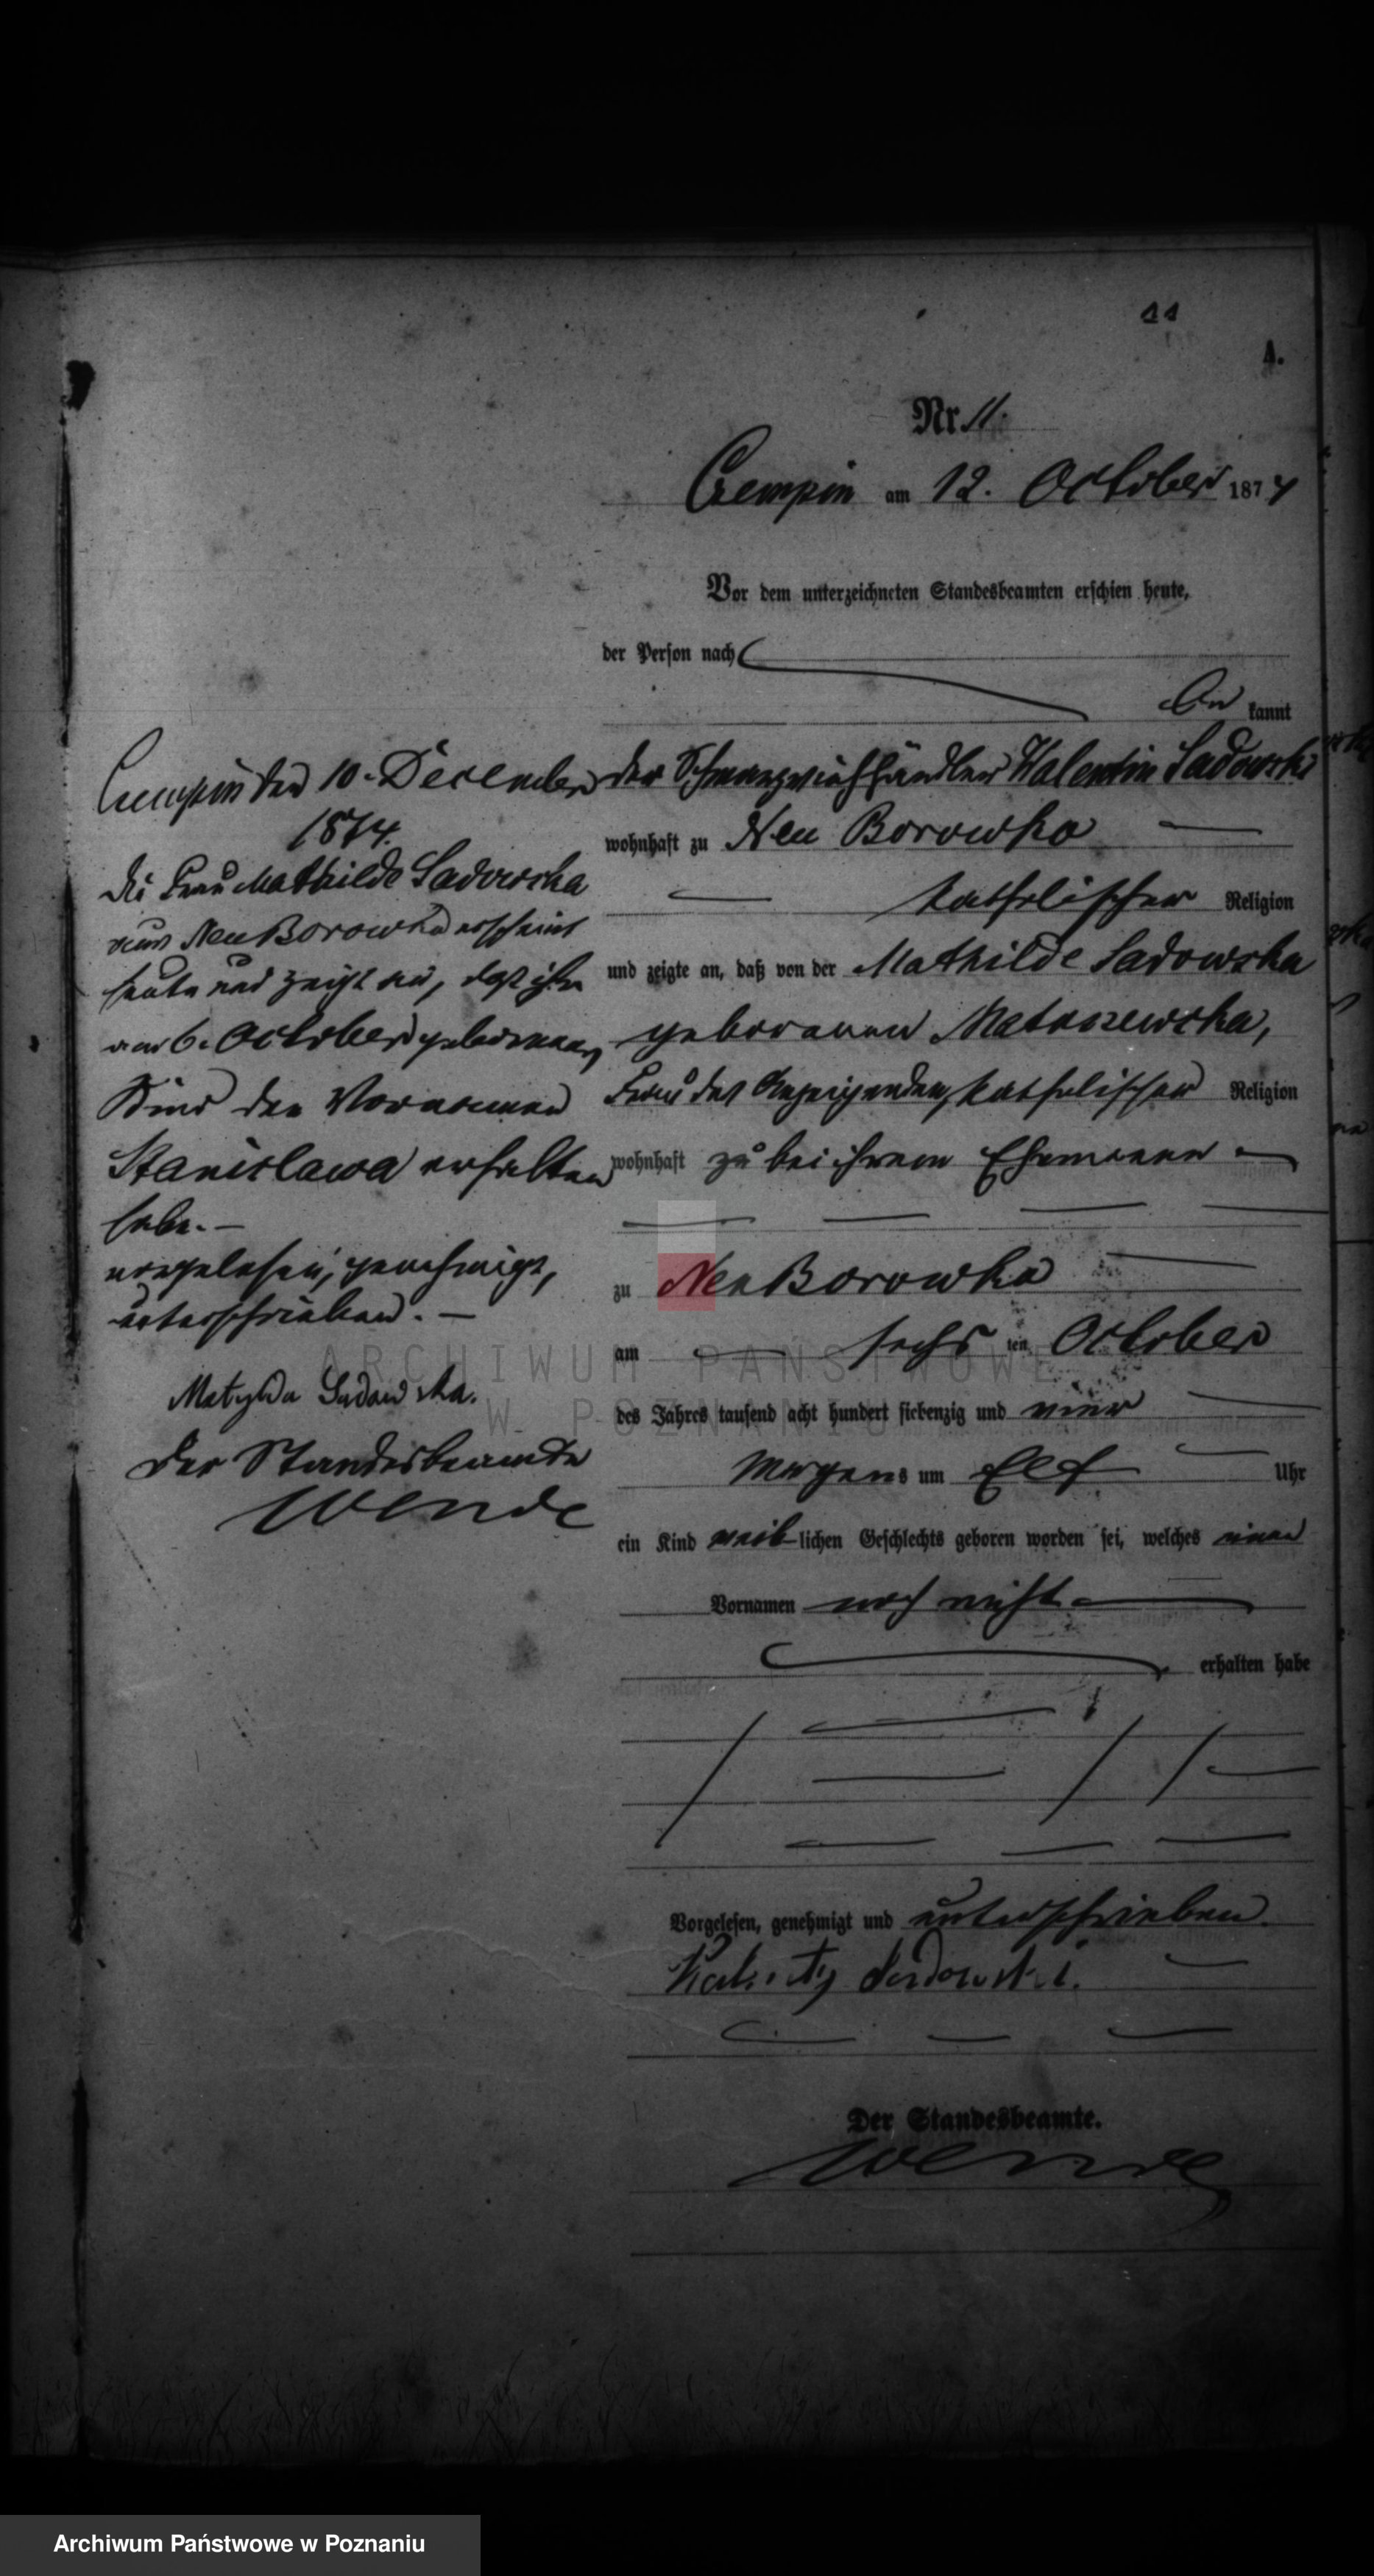 11
A.
Nr. 11.
Czempin am 12. October 1874
Vor dem unterzeichneten Standesbeamten erschien heute,
der Person nach
be kannt
der Schwarzviehhändler Valentin Sadowski
wohnhaft zu Neu Borowko
katholischer Religion
und zeigte an, daß von der Mathilde Sadowska
geborenen Matuszewska,
Frau des Anzeigenden, katholischer Religion
wohnhaft zu bei ihrem Ehemann
zu Neu Borowko
am sechs ten October
des Jahres tausend acht hundert siebenzig und vier
Morgens um Elf Uhr
ein Kind weiblichen Geschlechts geboren worden sei, welches einen
Vornamen noch nicht
erhalten habe
Vorgelesen, genehmigt und unterschrieben.
Sadowski.
Der Standesbeamte.
Wende
Czempin den 10. December
1874.
Die Frau Mathilde Sadowska
aus Neu Borowko erscheint
heute und zeigt an, daß ihr
am 6. October geborenes
Kind den Vornamen
Stanislawa erhalten
habe. —
vorgelesen, genehmigt,
unterschrieben. —
Matylda Sadowska.
Der Standesbeamte
Wende
ARCHIWUM PAŃSTWOWE
W POZNANIU
Archiwum Państwowe w Poznaniu